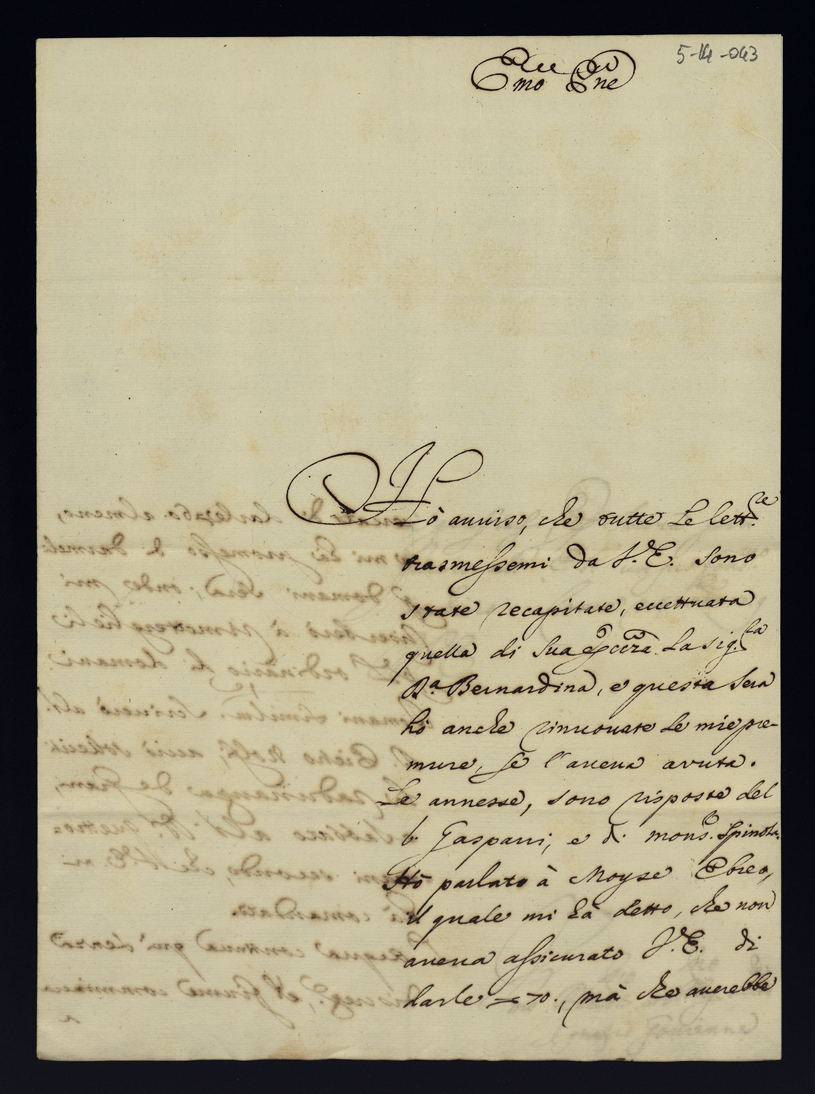 5-14-043
Emo Pne
Hò auuiso, che tutte le lettre
trasmessemi da V.E. sono
state recapitate, eccettuata
quella di Sua Eccza la sigra
Da Bernardina, e questa sera
hò anche rinuouate le mie pre-
mure, se l'aueua avuta.
Le annesse, sono risposte del
Gasparri, e di monsr Spinola.
Hò parlato à Moyse Ebreo,
il quale mi hà detto, che non
aueua assicurato V.E. di
darle 70., mà che auerebbe